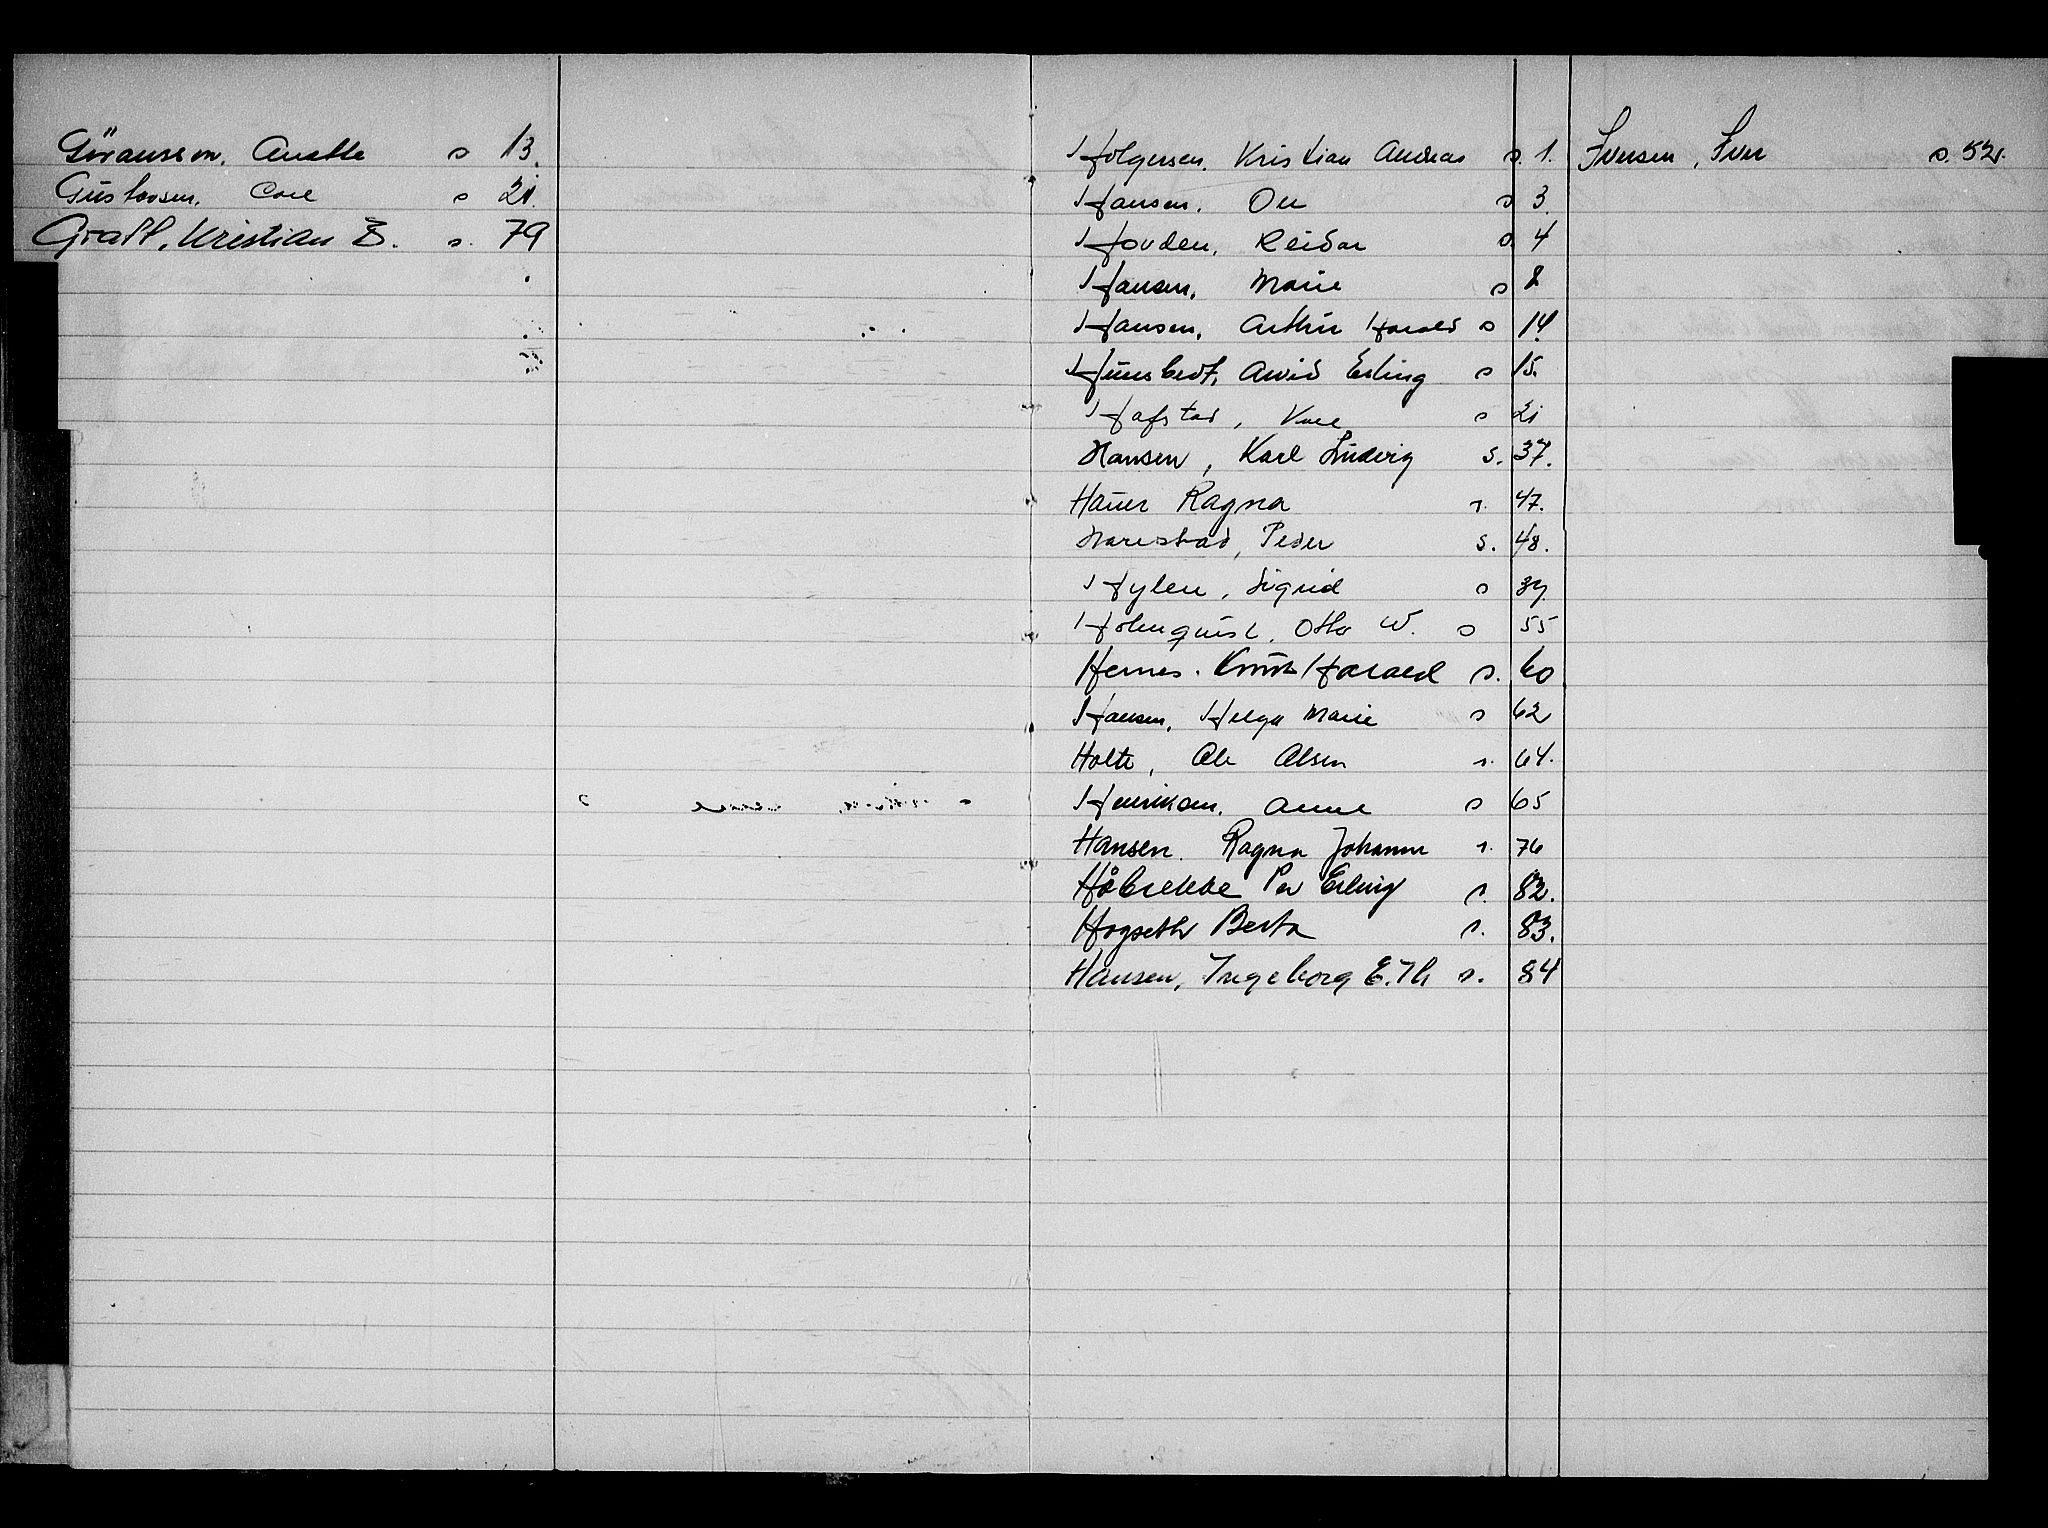 Göransson, Anette s 13.
Gustavsen, Carl s 21.
Graff, Kristian B. s. 79
Holgersen, Kristian Andreas s. 1.
Hansen, Ole s 3.
Hovden, Reidar s. 4
Hansen, Marie s 8
Hansen, Arthur Harald s 14
Hunsbedt, Arvid Erling s 15.
Hafstad, Kåre s 21
Hansen, Karl Ludvig s. 37.
Hauer Ragna s. 47.
Harestad, Peder s. 48.
Hylen, Sigrid s 39.
Holmquist, Otto W. s 55
Hernes. Knut Harald s. 60
Hansen, Helga Marie s 62
Holte, Ole Olsen s. 64.
Henriksen, Anne s 65
Hansen. Ragna Johanne s. 76
Håbrekke Per Erling s. 82.
Hogseth Berta s. 83.
Hansen, Ingeborg E. Th s. 84
Iversen, Iver s. 52.